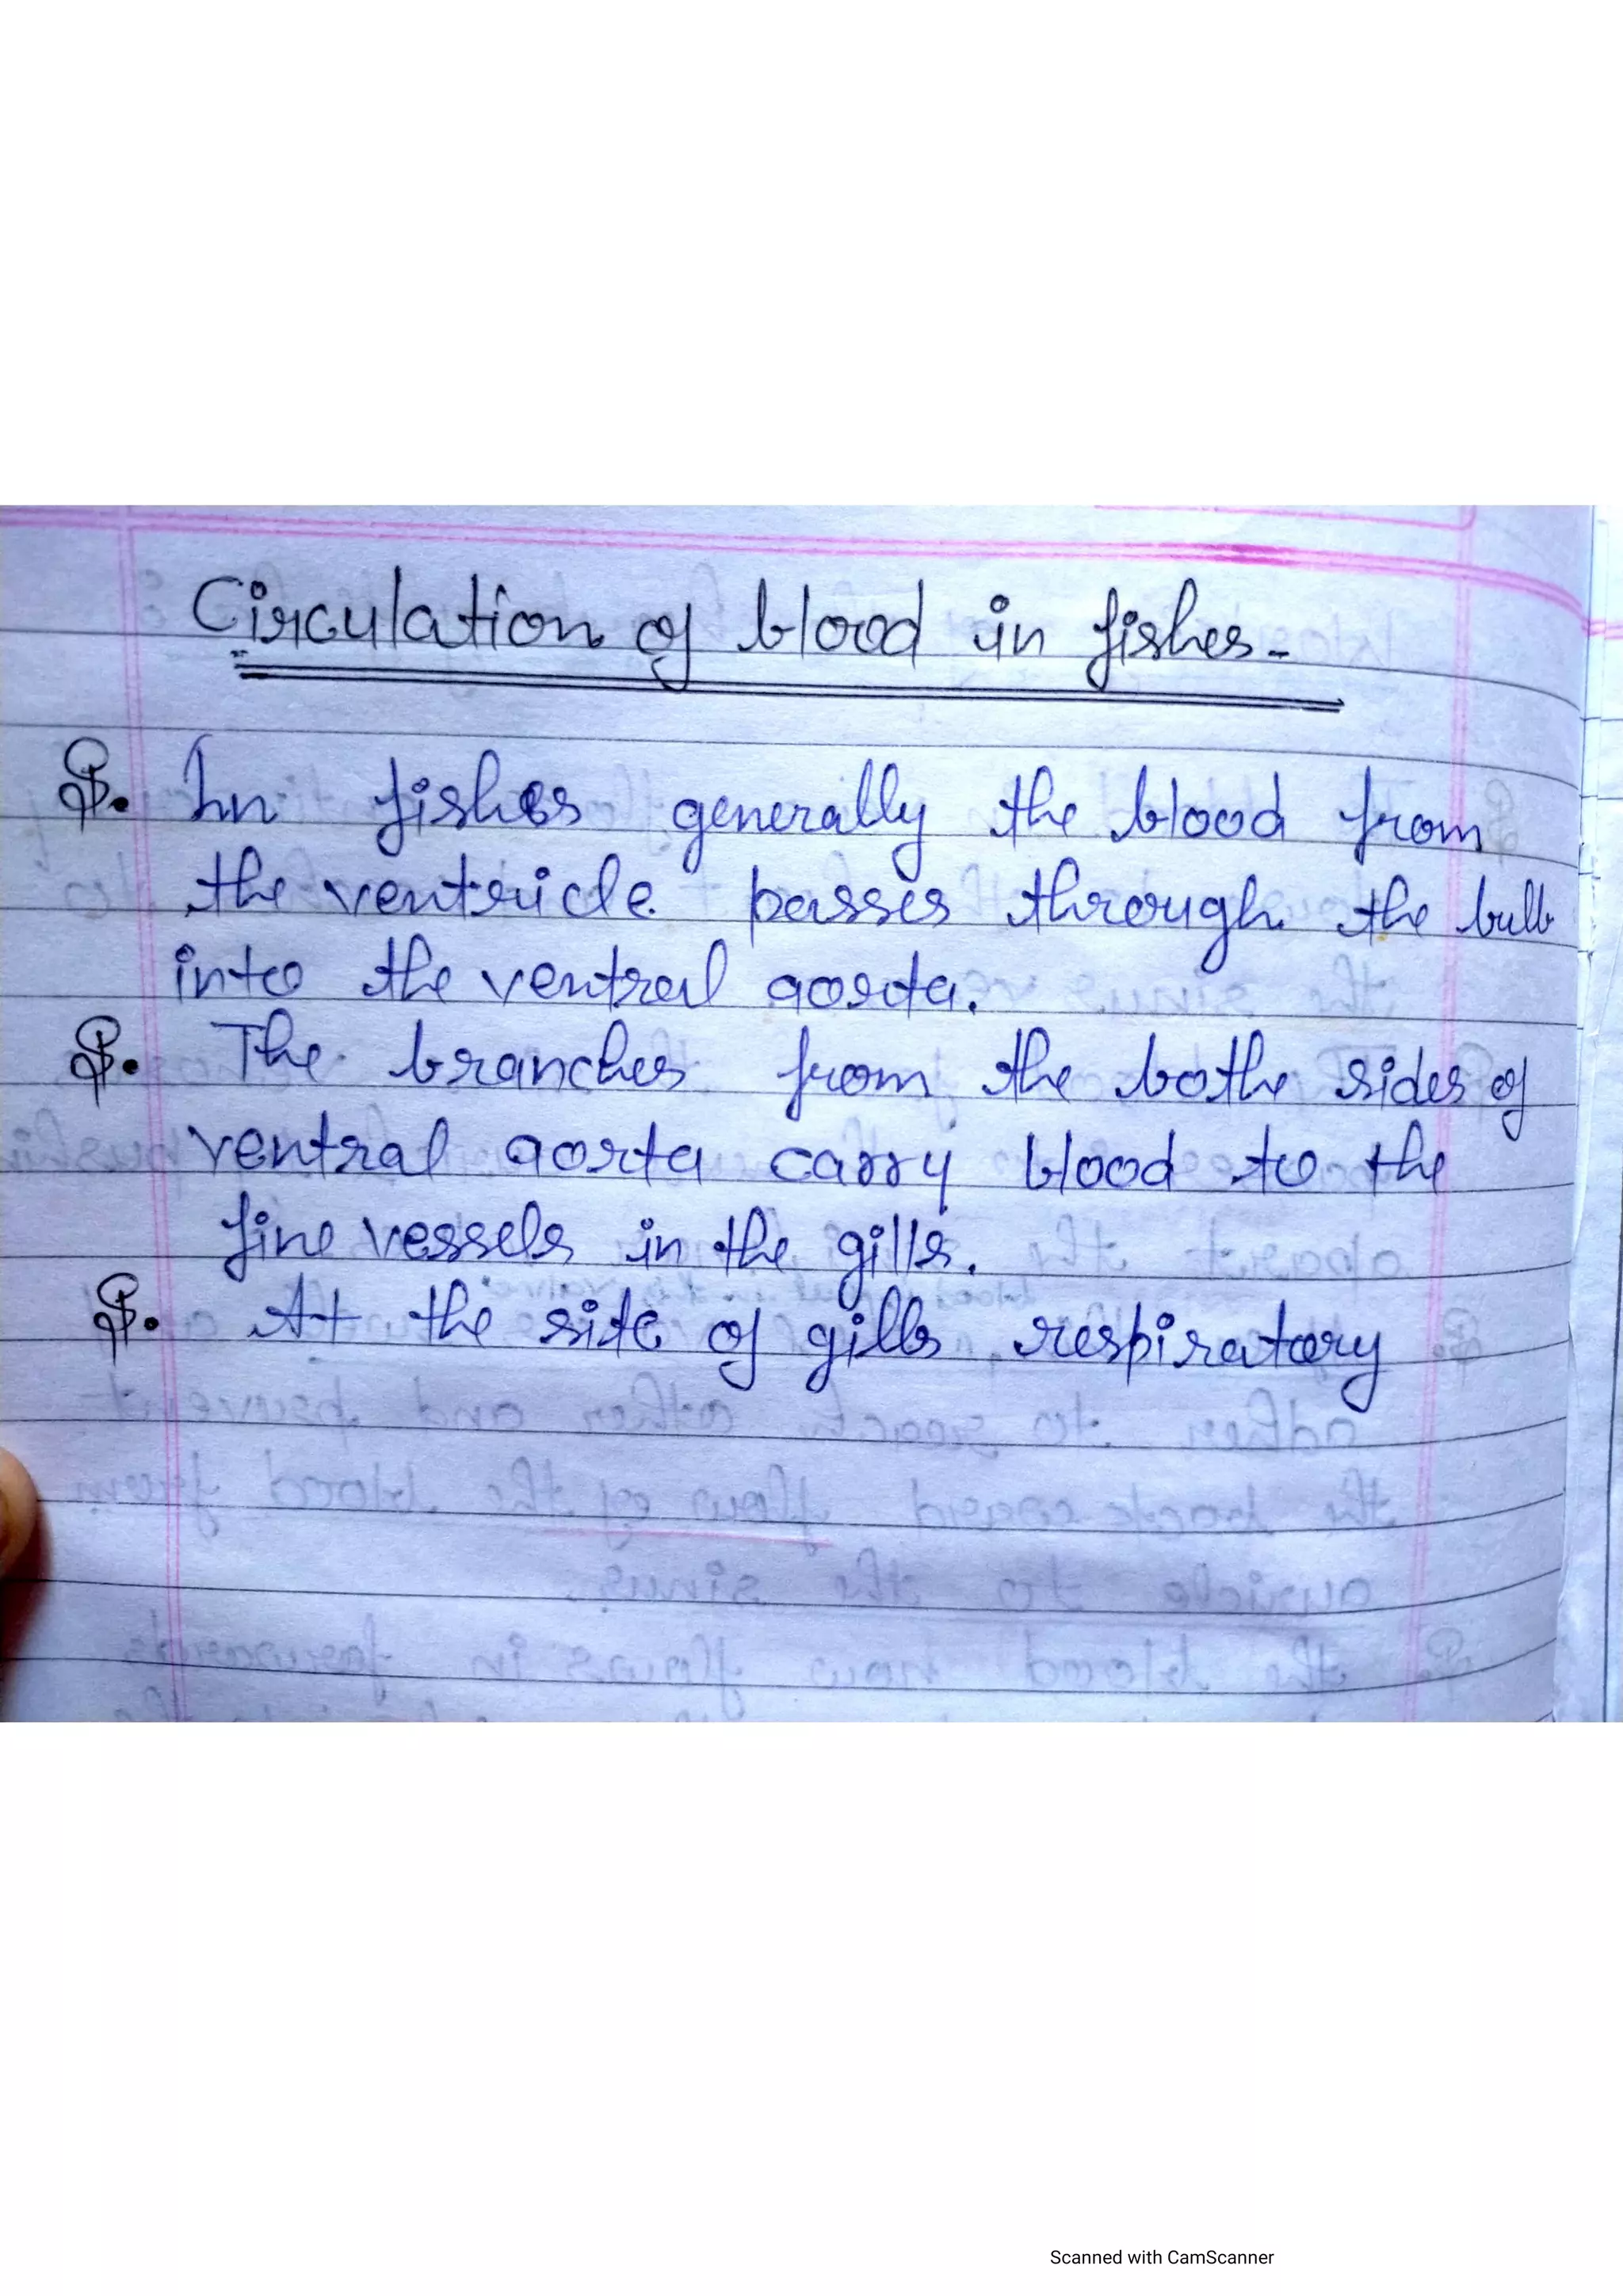 Circulation of blood in fishes-
In fishes generally the blood from
the ventricle passes through the bulb
into the ventral aorta.
The branches from the bothe sides of
ventral aorta carry blood to the
fine vessels in the gills.
At the site of gills respiratory
Scanned with CamScanner